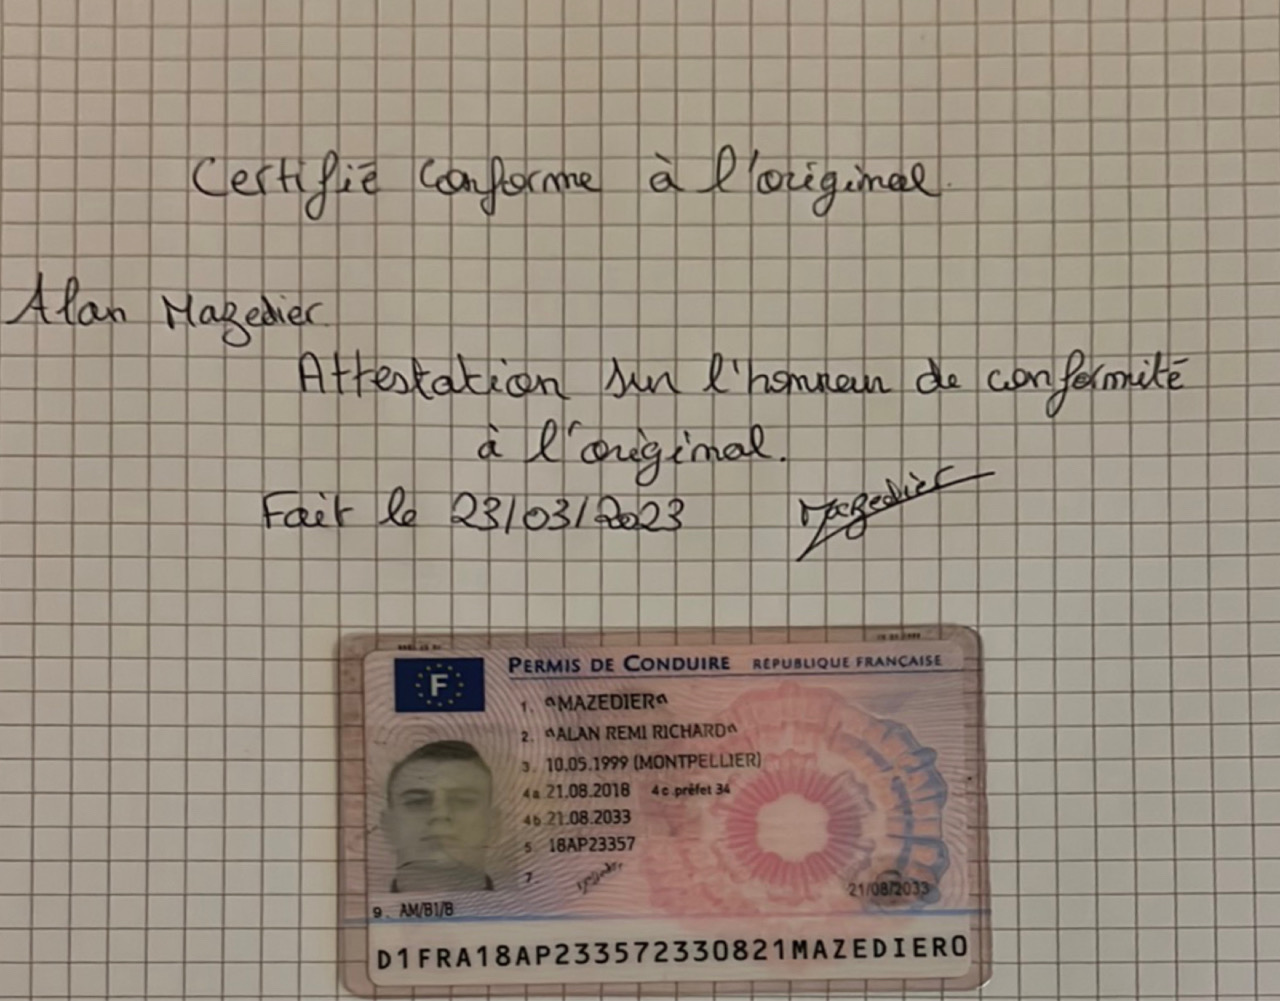 Certifié conforme à l'original.
Alan Mazedier
Attestation sur l'honneur de conformité
à l'original.
Fait le 23/03/2023 Mazedier
F PERMIS DE CONDUIRE RÉPUBLIQUE FRANÇAISE
1. "MAZEDIER"
2. "ALAN REMI RICHARD"
3. 10.05.1999 (MONTPELLIER)
4a 21.08.2018 4c préfet 34
4b 21.08.2033
5 18AP23357
7.
21/08/2033
9. AM/B1/B
D1FRA18AP233572330821MAZEDIER0